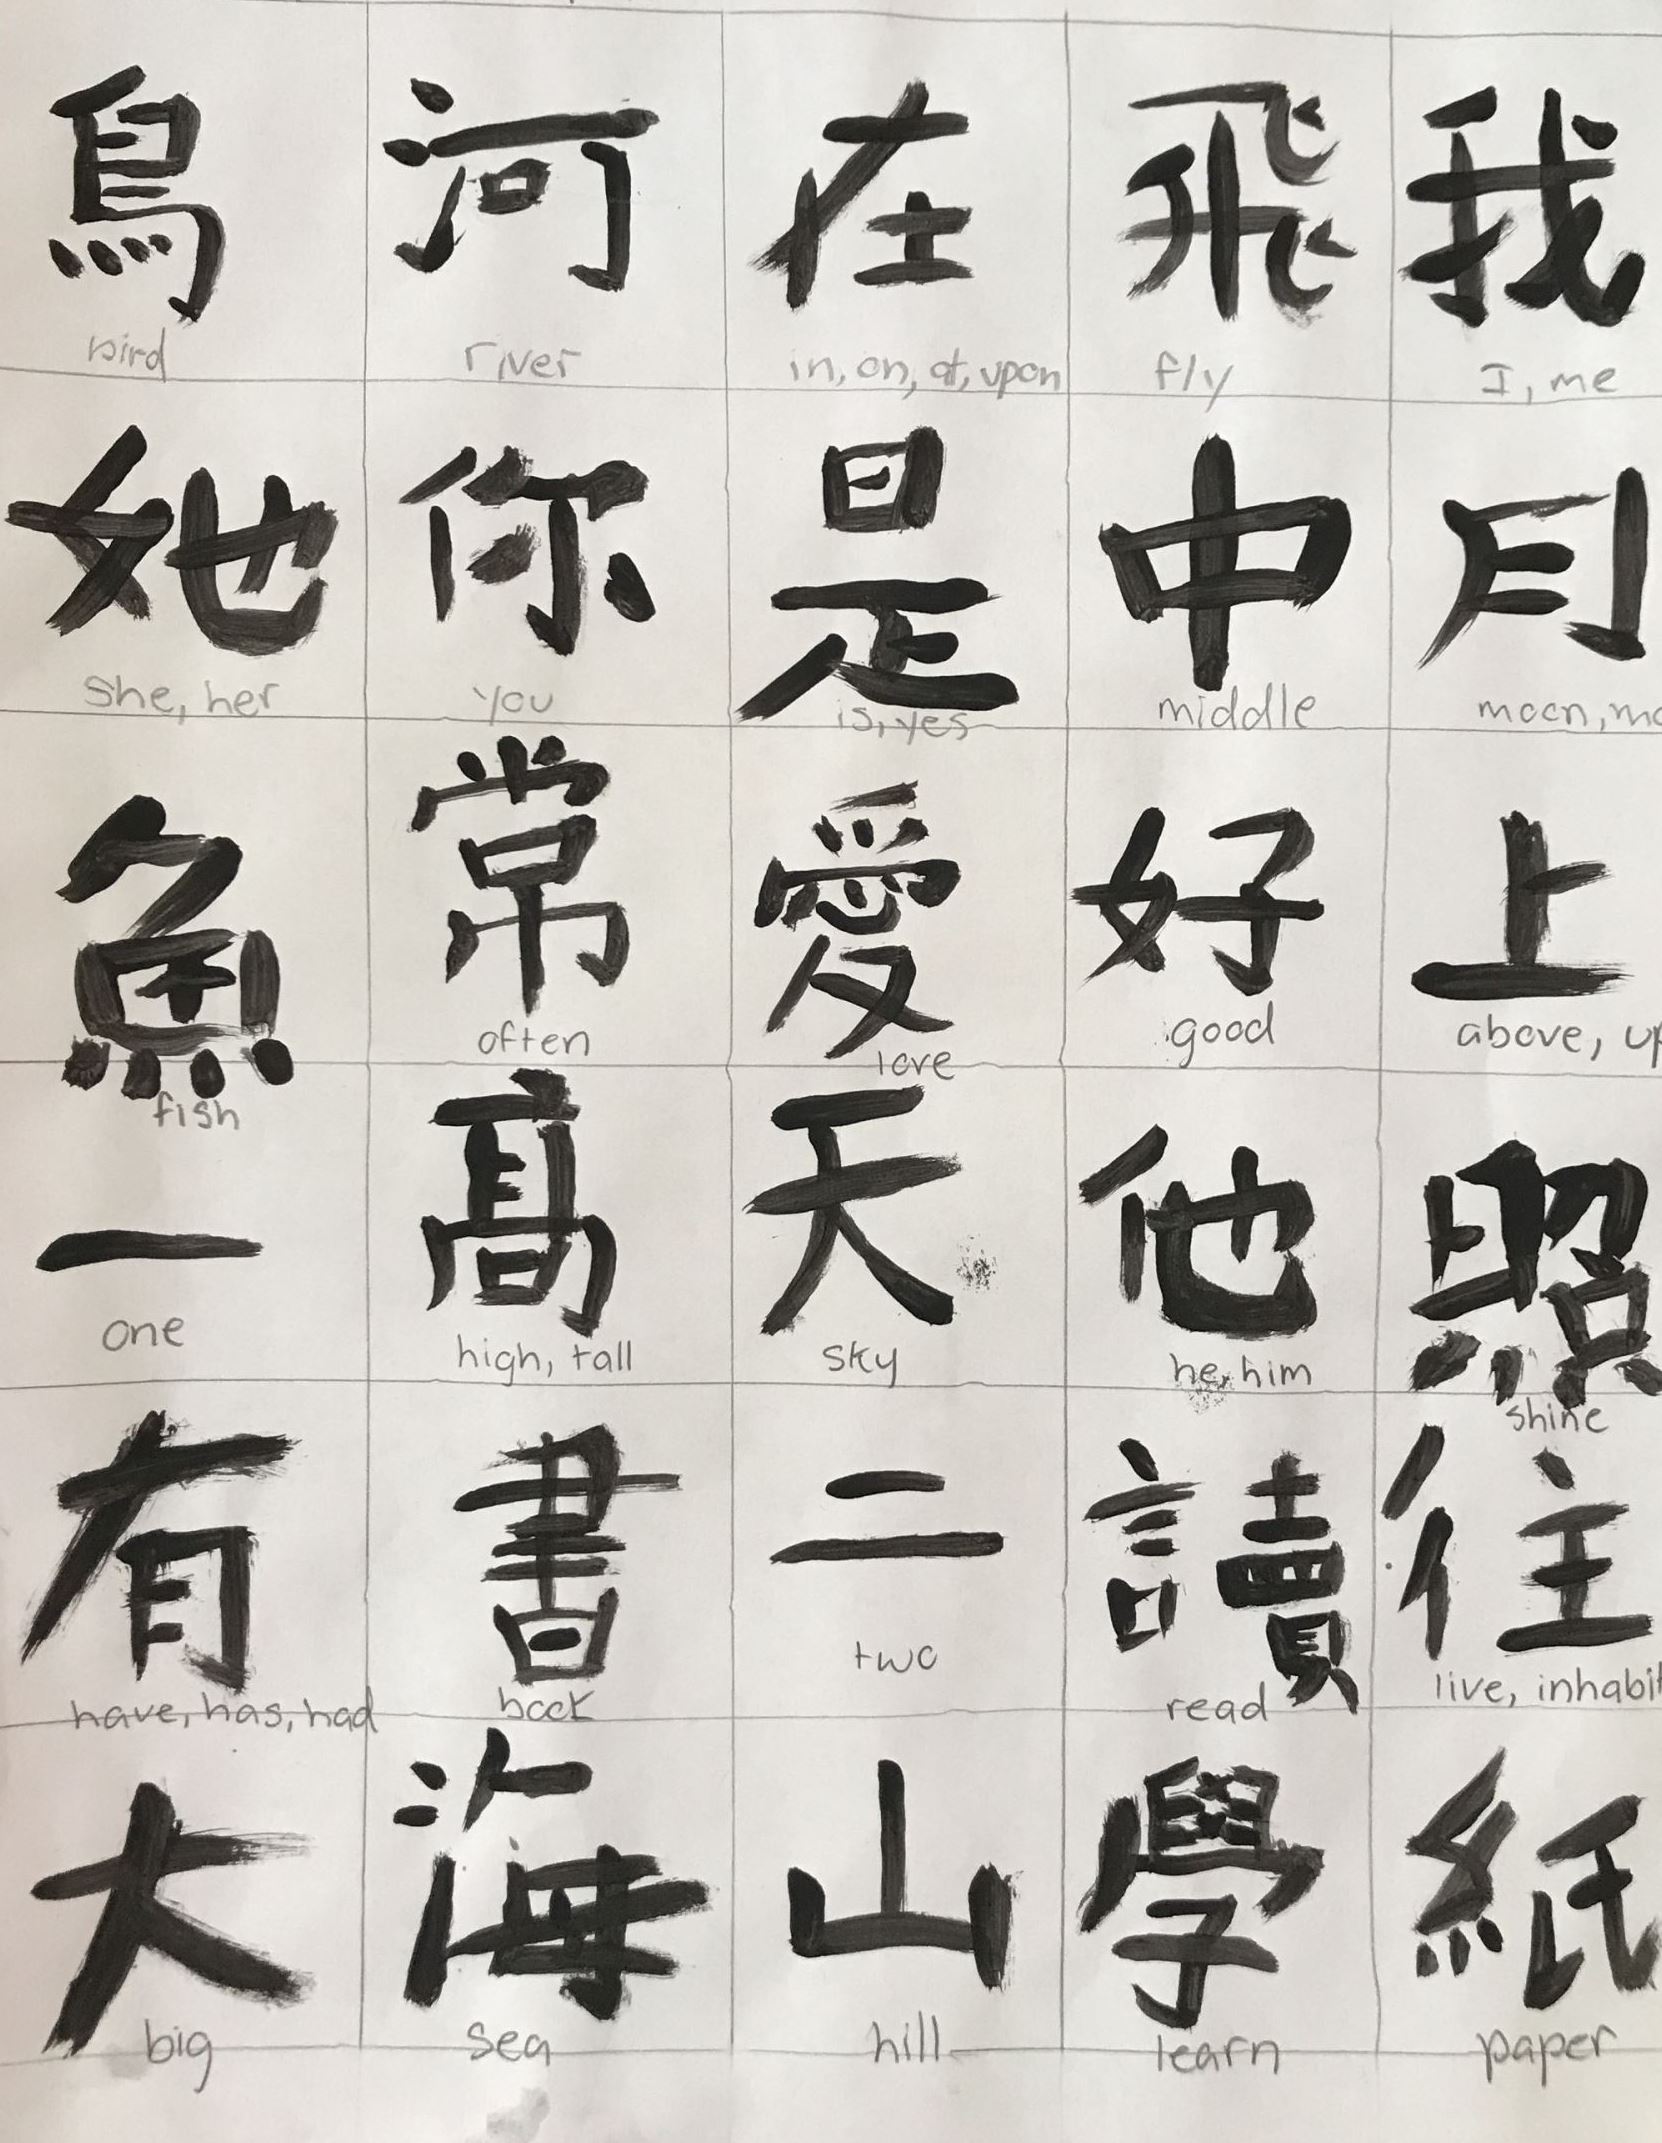 鳥 河 在 飛 我
bird river in, on, at, upon fly I, me
她 你 是 中 月
she, her you is, yes middle moon, mo
魚 常 愛 好 上
fish often love good above, up
一 高 天 他 照
one high, tall sky he, him shine
有 書 二 讀 住
have, has, had book two read live, inhabit
大 海 山 學 紙
big sea hill learn paper